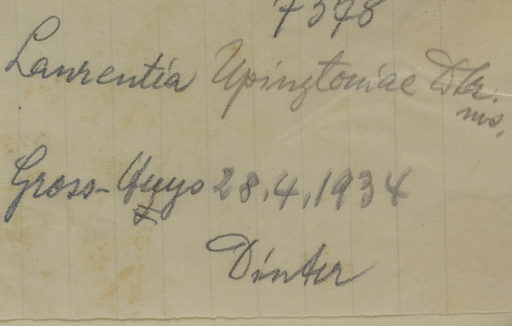 7378
Laurentia Upingtoniae Dtr.
ms.
Gross-Huyo 28.4.1934
Dinter